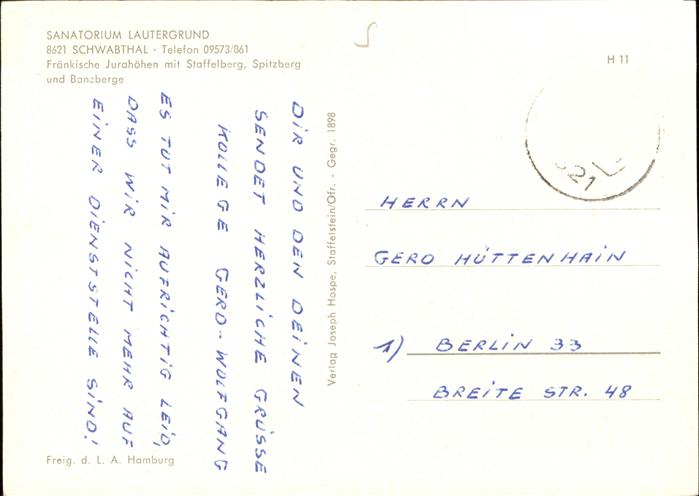 SANATORIUM LAUTERGRUND
8621 SCHWABTHAL · Telefon 09573/861
Fränkische Jurahöhen mit Staffelberg, Spitzberg
und Banzberge
H 11
DIR UND DEN DEINEN
SENDET HERZLICHE GRÜSSE
KOLLEGE GERD-WOLFGANG
ES TUT MIR AUFRICHTIG LEID,
DASS WIR NICHT MEHR AUF
EINER DIENSTSTELLE SIND!
Verlag Joseph Haspe, Staffelstein/Ofr. - Gegr. 1898
HERRN
GERO HÜTTENHAIN
1) BERLIN 33
BREITE STR. 48
Freig. d. L. A. Hamburg